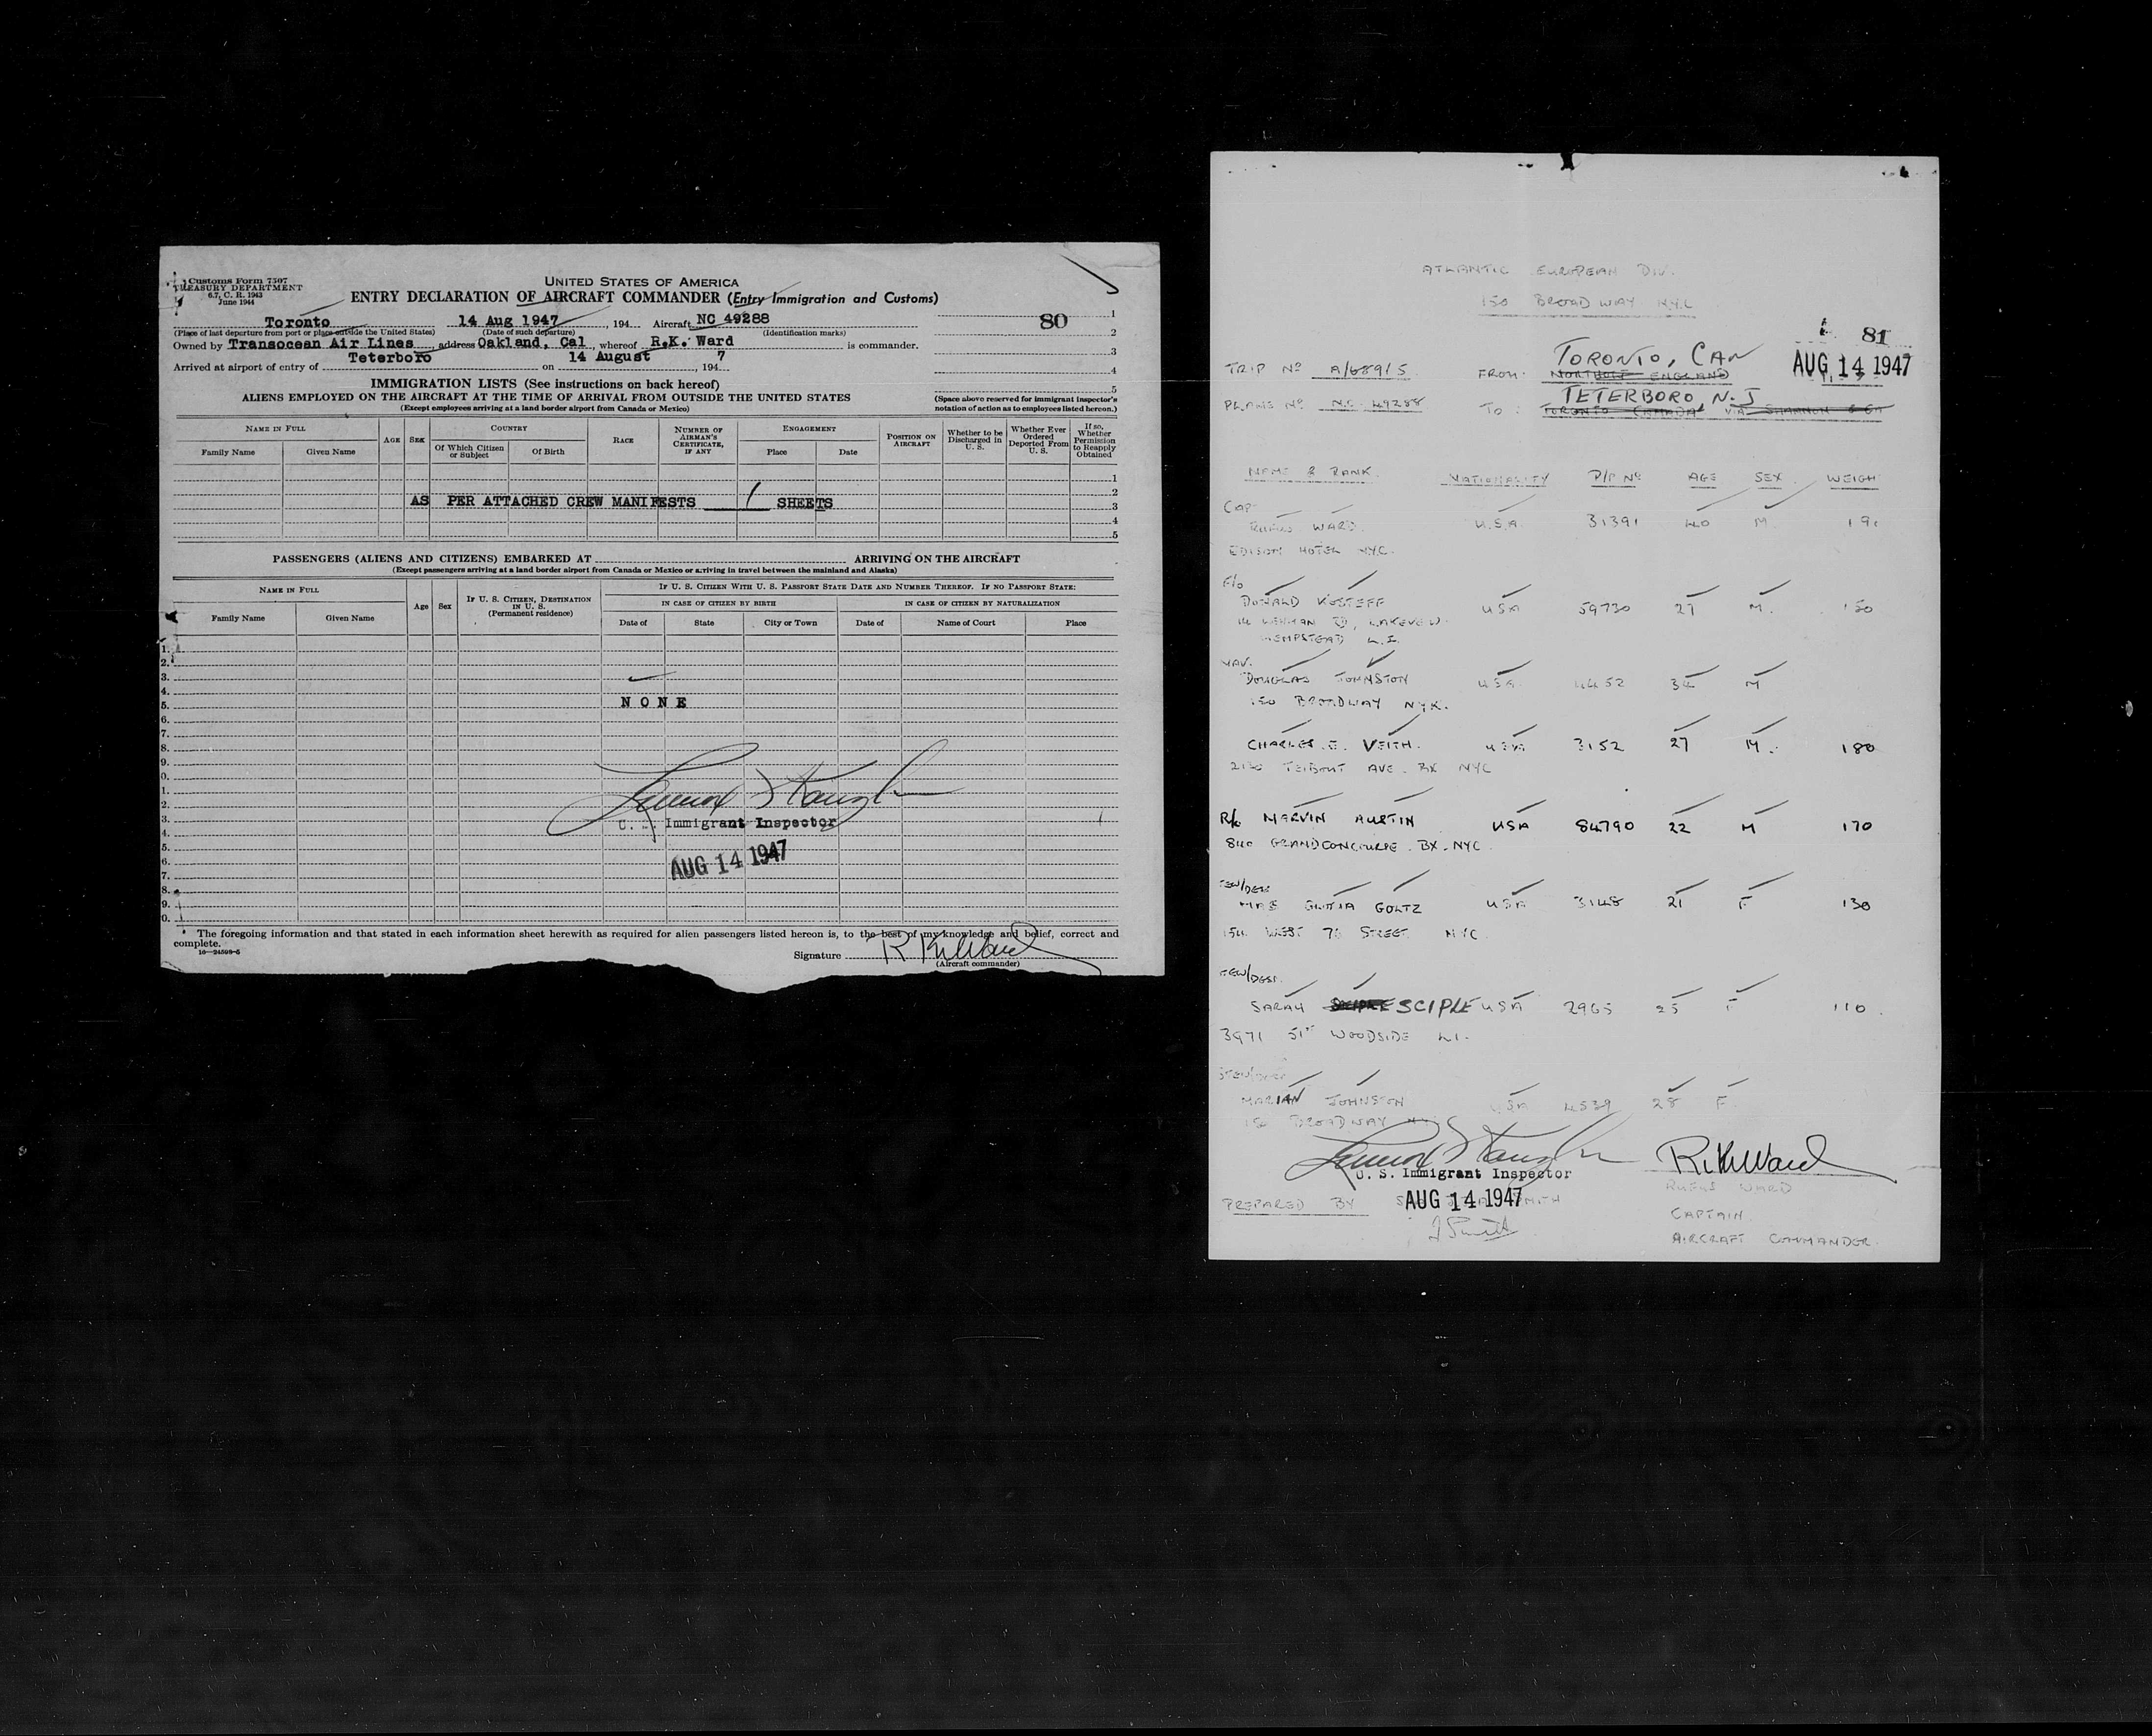 Customs Form 7507
TREASURY DEPARTMENT
6.7, C. R. 1943
June 1944
UNITED STATES OF AMERICA
ENTRY DECLARATION OF AIRCRAFT COMMANDER (Entry Immigration and Customs)
Toronto 14 Aug 1947, 194 Aircraft NC 49288
(Place of last departure from port or place outside the United States) (Date of such departure) (Identification marks)
Owned by Transocean Air Lines, address Oakland, Cal, whereof R.K. Ward is commander.
Arrived at airport of entry of Teterboro on 14 August, 194 7
80
1
2
3
4
5
IMMIGRATION LISTS (See instructions on back hereof)
ALIENS EMPLOYED ON THE AIRCRAFT AT THE TIME OF ARRIVAL FROM OUTSIDE THE UNITED STATES
(Except employees arriving at a land border airport from Canada or Mexico)
(Space above reserved for immigrant inspector's notation of action as to employees listed hereon.)
NAME IN FULL
Family Name Given Name
AGE SEX
COUNTRY
Of Which Citizen or Subject Of Birth
RACE
NUMBER OF AIRMAN'S CERTIFICATE, IF ANY
ENGAGEMENT
Place Date
POSITION ON AIRCRAFT
Whether to be Discharged in U. S.
Whether Ever Ordered Deported From U. S.
If so, Whether Permission to Reapply Obtained
1
2
AS PER ATTACHED CREW MANIFESTS / SHEETS 3
4
5
PASSENGERS (ALIENS AND CITIZENS) EMBARKED AT ARRIVING ON THE AIRCRAFT
(Except passengers arriving at a land border airport from Canada or Mexico or arriving in travel between the mainland and Alaska)
NAME IN FULL
Family Name Given Name
Age Sex
IF U. S. CITIZEN, DESTINATION IN U. S.
(Permanent residence)
IF U. S. CITIZEN WITH U. S. PASSPORT STATE DATE AND NUMBER THEREOF. IF NO PASSPORT STATE:
IN CASE OF CITIZEN BY BIRTH IN CASE OF CITIZEN BY NATURALIZATION
Date of State City or Town Date of Name of Court Place
1.
2.
3.
4.
5. NONE
6.
7.
8.
9.
0.
1.
2.
3.
4. Immigrant Inspector
5.
6. AUG 14 1947
7.
8.
9.
0.
The foregoing information and that stated in each information sheet herewith as required for alien passengers listed hereon is, to the best of my knowledge and belief, correct and
complete.
16—24598-5
Signature R K Ward
(Aircraft commander)
ATLANTIC EUROPEAN DIV.
150 BROADWAY N.Y.C
81
AUG 14 1947
TRIP No A/6891/5 FROM: TORONTO, CAN
NORTHOLT ENGLAND
PLANE No N.C. 49288 TO: TETERBORO, N.J
TORONTO CANADA VIA SHANNON
NAME & RANK. NATIONALITY P/P No AGE SEX. WEIGH
CAP
RUFUS WARD. U.S.A. 31391 40 M.
EDISON HOTEL N.Y.C.
F/O
DONALD KOSTEFF USA 59730 27 M.
HEMPSTEAD L.I.
NAV.
DOUGLAS JOHNSTON USA 4452 34 M
150 BROADWAY NYK.
CHARLES E. VEITH. USA 3152 27 M. 180
AVE. BX NYC
R/O MARVIN AUSTIN USA 84790 22 M 170
840 GRANDCONCOURSE. BX. NYC
GOLTZ USA 3148 21 F 130
WEST STREET NYC
SARAH SCIPLE USA 2965 25 F 110
3971 51st WOODSIDE L.I.
MARIAN JOHNSTON USA 4539 28 F.
150 BROADWAY
U. S. Immigrant Inspector
R. K. Ward
RUFUS WARD
PREPARED BY AUG 14 1947 SMITH
J Smith
CAPTAIN
AIRCRAFT COMMANDER.